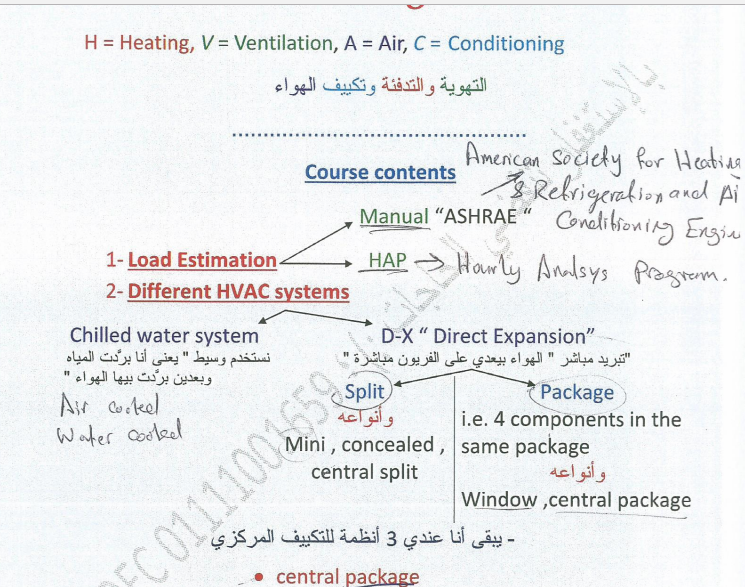 H = Heating, V = Ventilation, A = Air, C = Conditioning
التهوية والتدفئة وتكييف الهواء
Course contents
American Society for Heating
& Refrigeration and Ai
Conditioning Engin
Manual "ASHRAE "
1- Load Estimation
HAP → Hourly Analsys Program.
2- Different HVAC systems
Chilled water system
نستخدم وسيط " يعني أنا بردَّت المياه
وبعدين بردَّت بيها الهواء "
Air cooled
Water cooled
D-X " Direct Expansion"
"تبريد مباشر " الهواء بيعدي على الفريون مباشرة "
Split
وأنواعه
Mini , concealed ,
central split
Package
i.e. 4 components in the
same package
وأنواعه
Window ,central package
- يبقى أنا عندي 3 أنظمة للتكييف المركزي
• central package
01111001659